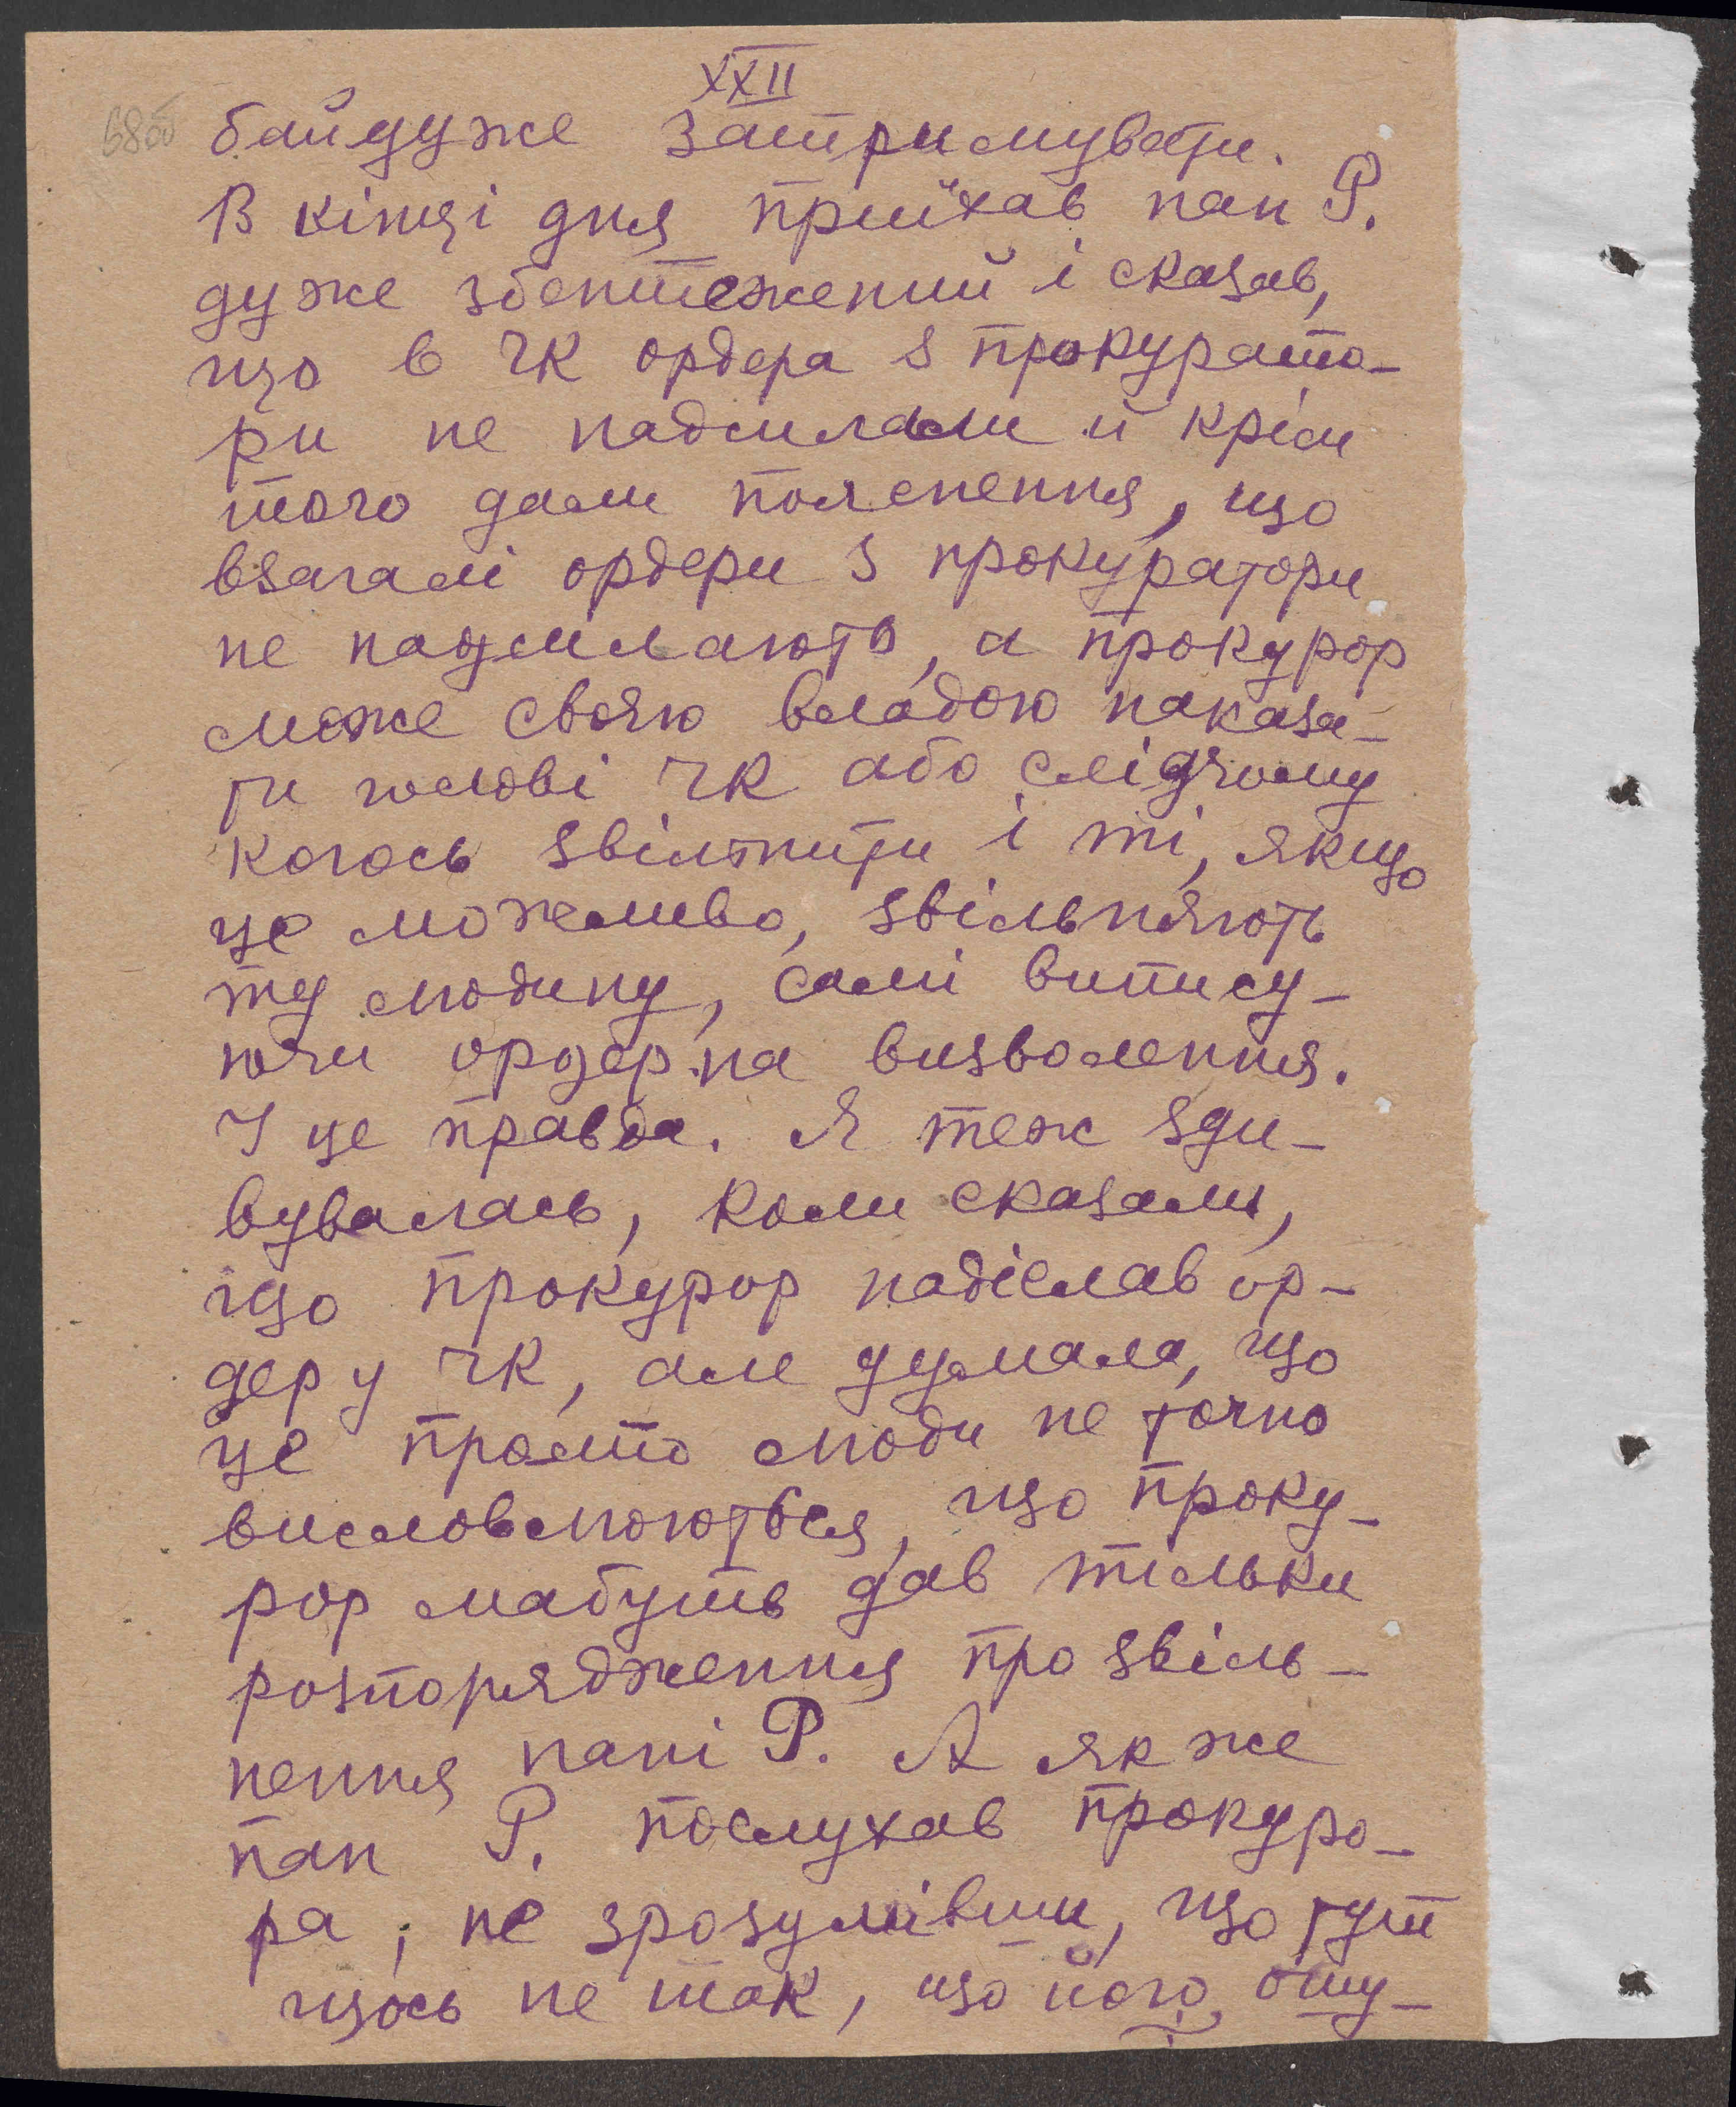 XXII
68об
байдуже затримувати.
В кінці дня приїхав пан Р.
дуже збентежений і сказав,
що в ЧК ордера з прокурато-
ри не надсилали й крім
того дали пояснення, що
взагалі ордери з прокуратори
не надсилають, а прокурор
може своєю владою наказа-
ти голові ЧК або слідчому
когось звільнити і ті, якщо
це можливо, звільняють
ту людину, самі випису-
ючи ордер на визволення.
І це правда. Я теж зди-
вувалась, коли сказали,
що прокурор надіслав ор-
дер у ЧК, але думала, що
це просто люди не точно
висловлюються, що проку-
рор мабуть дав тільки
розпорядження про звіль-
нення пані Р. А як же
пан Р. послухав прокуро-
ра, не зрозумівши, що тут
щось не так, що його ошу-